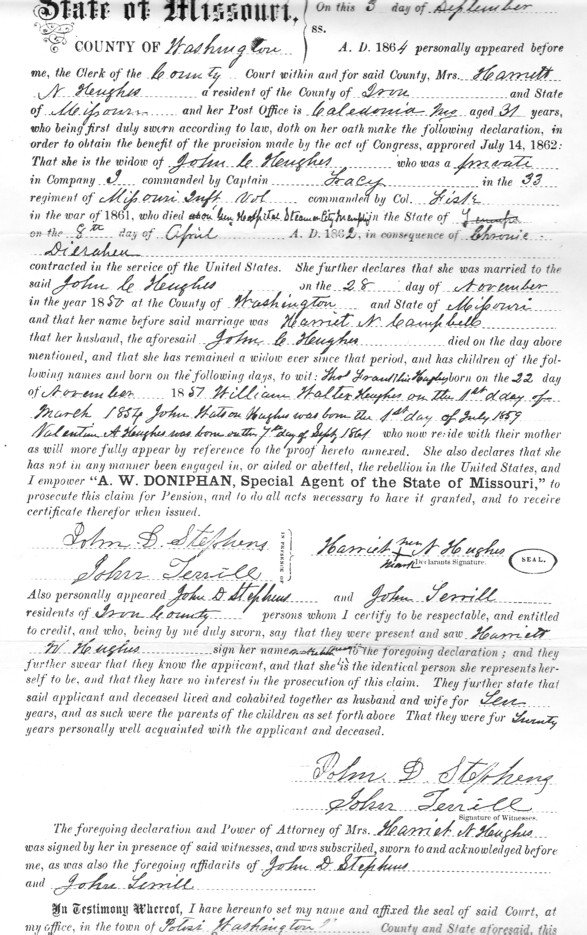 State of Missouri, On this 5 day of September
ss.
COUNTY OF Washington A. D. 1864 personally appeared before
me, the Clerk of the County Court within and for said County, Mrs. Harriett
N Heughes a resident of the County of Iron and State
of Missouri and her Post Office is Caledonia Mo aged 31 years,
who being first duly sworn according to law, doth on her oath make the following declaration, in
order to obtain the benefit of the provision made by the act of Congress, approved July 14, 1862:
That she is the widow of John C Heughes who was a private
in Company I commanded by Captain Tracy in the 33
regiment of Missouri Inft Vol commanded by Col. Fisk
in the war of 1861, who died Gen Hospital Steamer City Memphis in the State of
on the 8th day of April A. D. 1862, in consequence of Chronic
Dierahea
contracted in the service of the United States. She further declares that she was married to the
said John C Heughes on the 28 day of November
in the year 1850 at the County of Washington and State of Missouri
and that her name before said marriage was Harriet N. Campbell
that her husband, the aforesaid John C. Heughes died on the day above
mentioned, and that she has remained a widow ever since that period, and has children of the fol-
lowing names and born on the following days, to wit: Thos Franklin Hughes born on the 22 day
of November 1851 William Walter Heughes on the 1st day of
March 1854 John Watson Hughes was born the 1st day of July 1859
Valentine A Heughes was born on the 7th day of Sept 1861 who now reside with their mother
as will more fully appear by reference to the proof hereto annexed. She also declares that she
has not in any manner been engaged in, or aided or abetted, the rebellion in the United States, and
I empower "A. W. DONIPHAN, Special Agent of the State of Missouri," to
prosecute this claim for Pension, and to do all acts necessary to have it granted, and to receive
certificate therefor when issued.
John D. Stephens
IN PRESENCE OF
Harriet her N Hughes
X
mark Declarants Signature.
SEAL.
John Terrill
Also personally appeared John D Stephens and John Terrill
residents of Iron County persons whom I certify to be respectable, and entitled
to credit, and who, being by me duly sworn, say that they were present and saw Harriett
N Heughes sign her name to the foregoing declaration; and they
further swear that they know the applicant, and that she is the identical person she represents her-
self to be, and that they have no interest in the prosecution of this claim. They further state that
said applicant and deceased lived and cohabited together as husband and wife for Ten
years, and as such were the parents of the children as set forth above That they were for Twenty
years personally well acquainted with the applicant and deceased.
John. D. Stephens
John Terrill
Signature of Witnesses.
The foregoing declaration and Power of Attorney of Mrs. Harriet N Heughes
was signed by her in presence of said witnesses, and was subscribed, sworn to and acknowledged before
me, as was also the foregoing affidavits of John D Stephens
and John Terrill
In Testimony Whereof, I have hereunto set my name and affixed the seal of said Court, at
my office, in the town of Potosi Washington County and State aforesaid, this